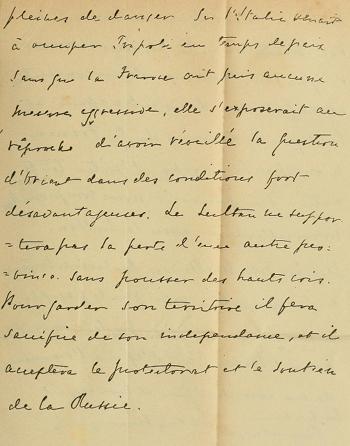 pleines de danger. Si l'Italie venait
à occuper Tripoli en temps de paix
sans que la France ait pris aucune
mesure aggressive, elle s'exposerait au
reproche d'avoir réveillé la question
d'Orient dans des conditions fort
désavantageuses. Le Sultan ne suppor
=tera pas la perte d'une autre pro:
=vince sans pousser des hauts cris.
Pour garder son territoire il fera
sacrifice de son independance, et il
acceptera le protectorat et le soutien
de la Russie.